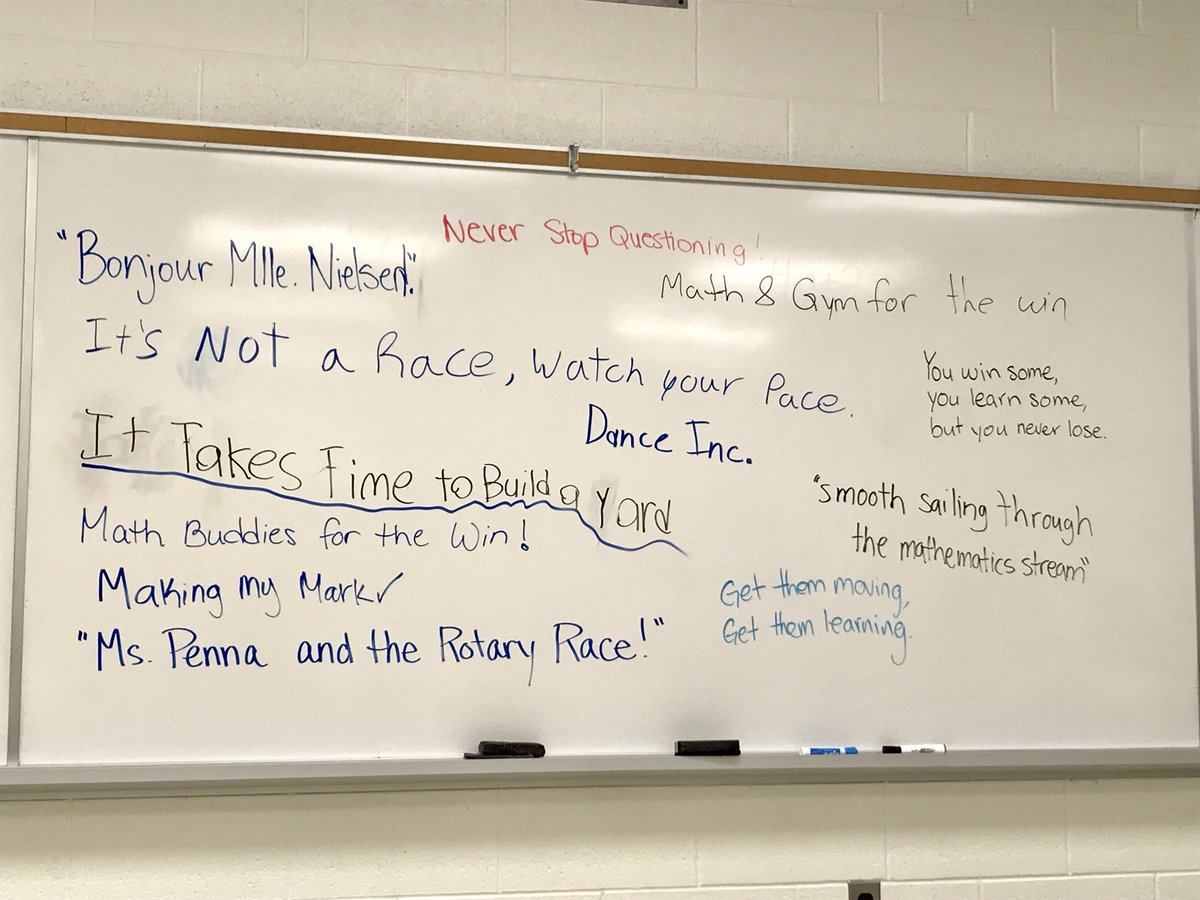 Never Stop Questioning!
"Bonjour Mlle. Nielsen!"
Math & Gym for the win
It's Not a Race, Watch your Pace.
You win some,
you learn some,
but you never lose.
Dance Inc.
It Takes Time to Build a Yard
"smooth sailing through
the mathematics stream"
Math Buddies for the Win!
Making my Mark✓
Get them moving,
Get them learning.
"Ms. Penna and the Rotary Race!"